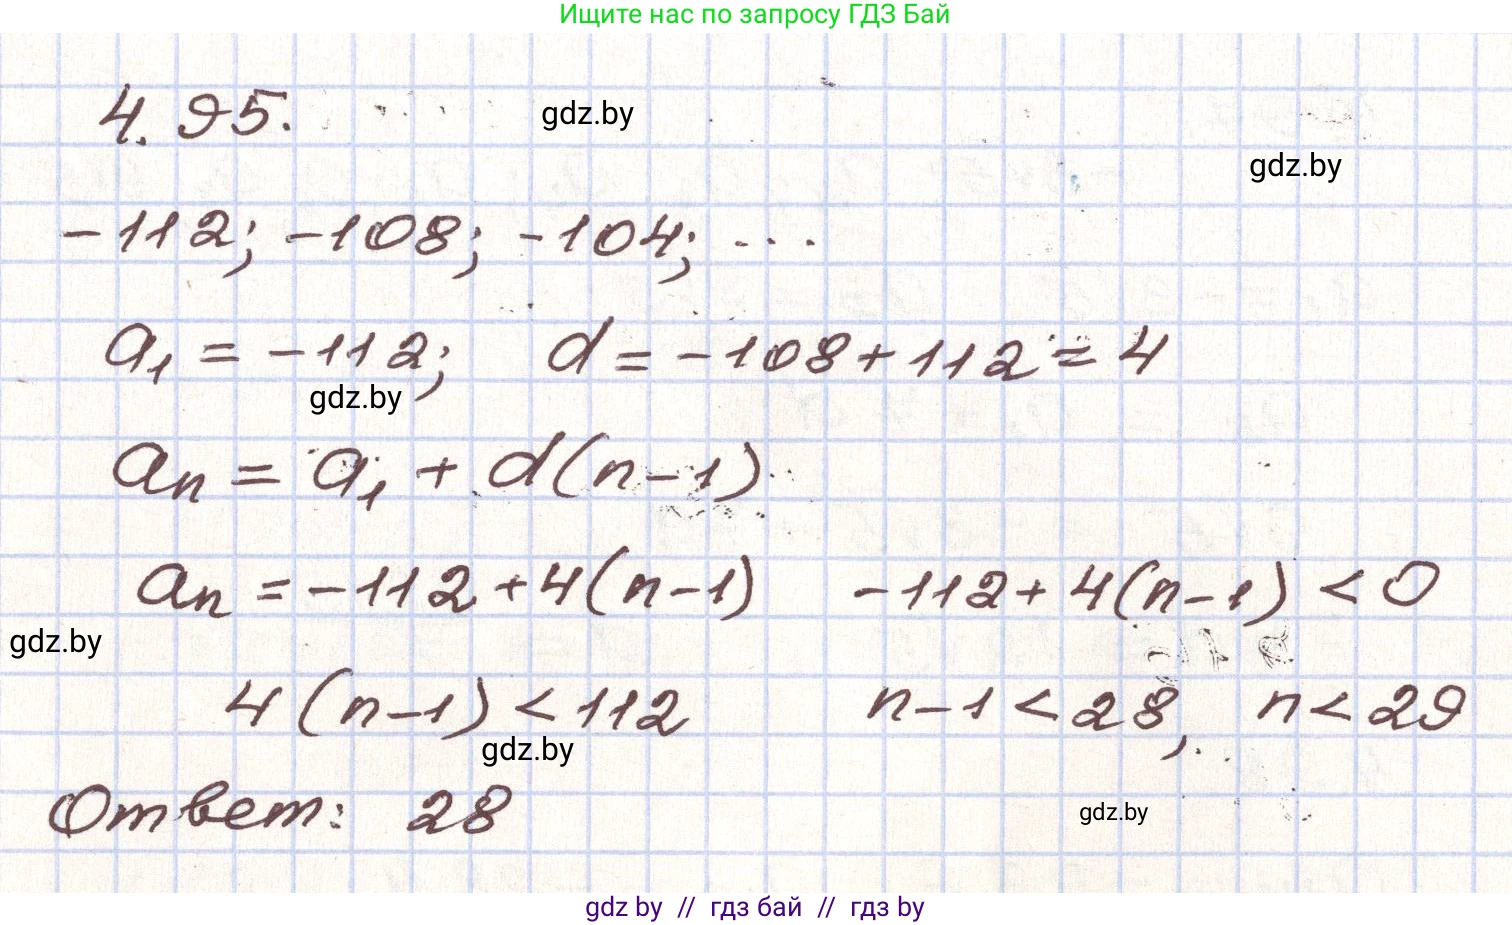 Ищите нас по запросу ГДЗ Бай
4.95. gdz.by
gdz.by
-112; -108; -104; ...
a₁ = -112; d = -108 + 112 = 4
gdz.by
aₙ = a₁ + d(n-1)
aₙ = -112 + 4(n-1) -112 + 4(n-1) < 0
gdz.by
4(n-1) < 112 n-1 < 28, n < 29
gdz.by
Ответ: 28
gdz.by
gdz by // гдз бай // гдз by